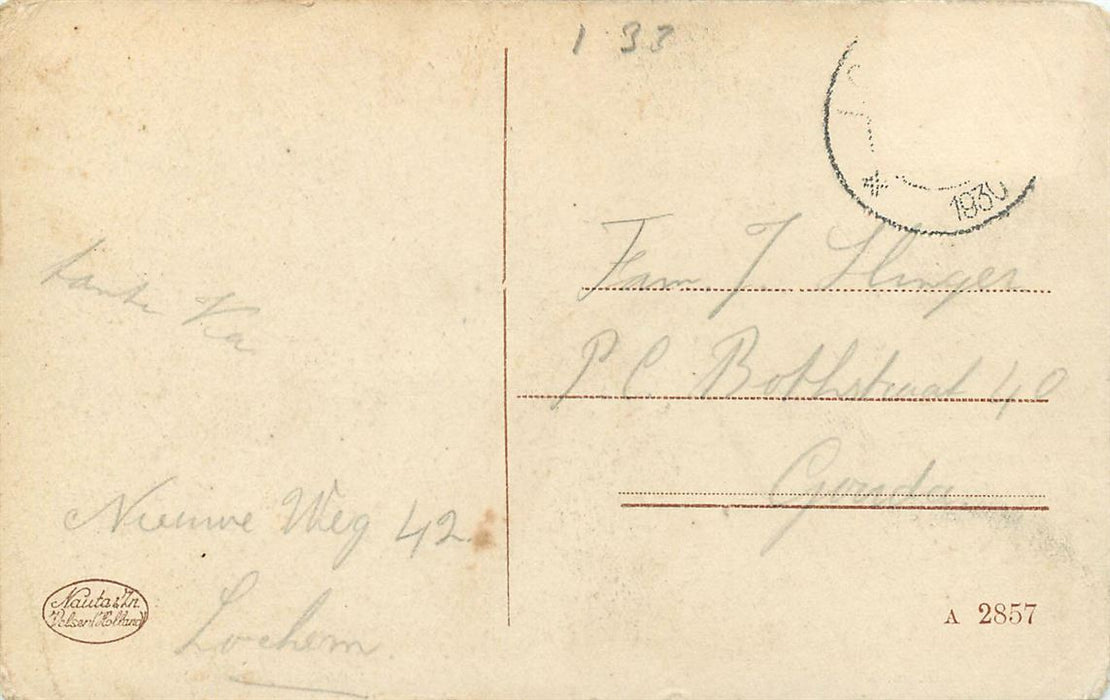 1 33
1930
tante Ka
Nieuwe Weg 42
Lochem
Fam. J. Slinger
P C Bothstraat 40
Gouda
Nauta & Zn.
Velsen (Holland)
A 2857